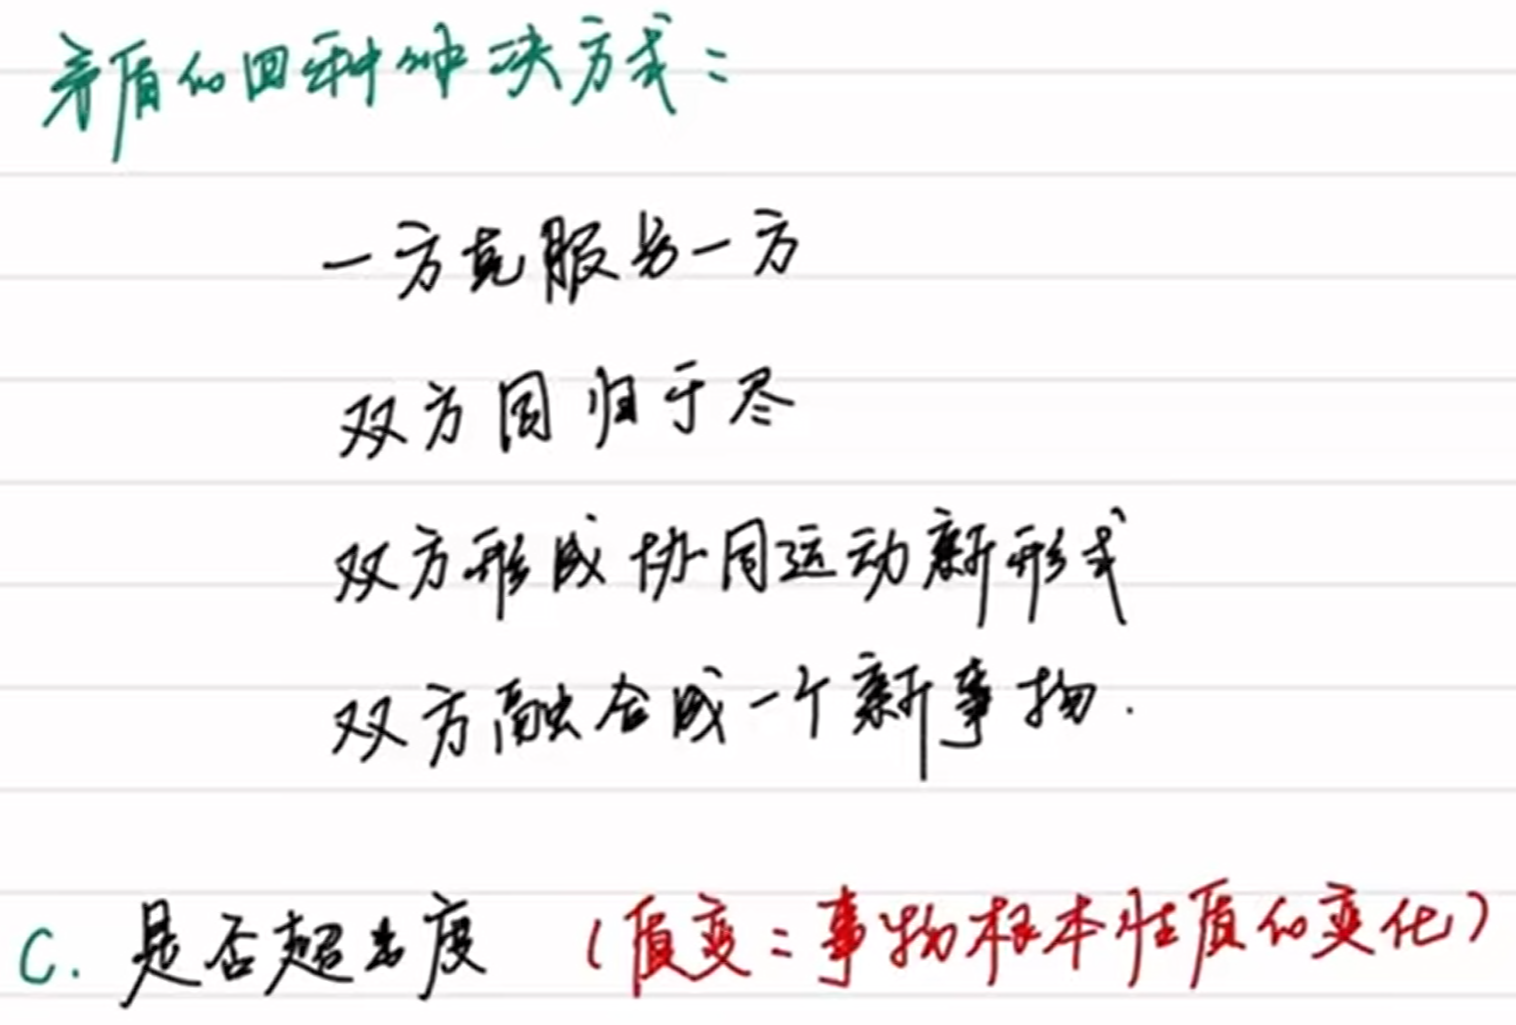 矛盾的四种冲决方式：
一方克服另一方
双方同归于尽
双方形成协同运动新形式
双方融合成一个新事物.
C. 是否超出度 （质变：事物根本性质的变化）